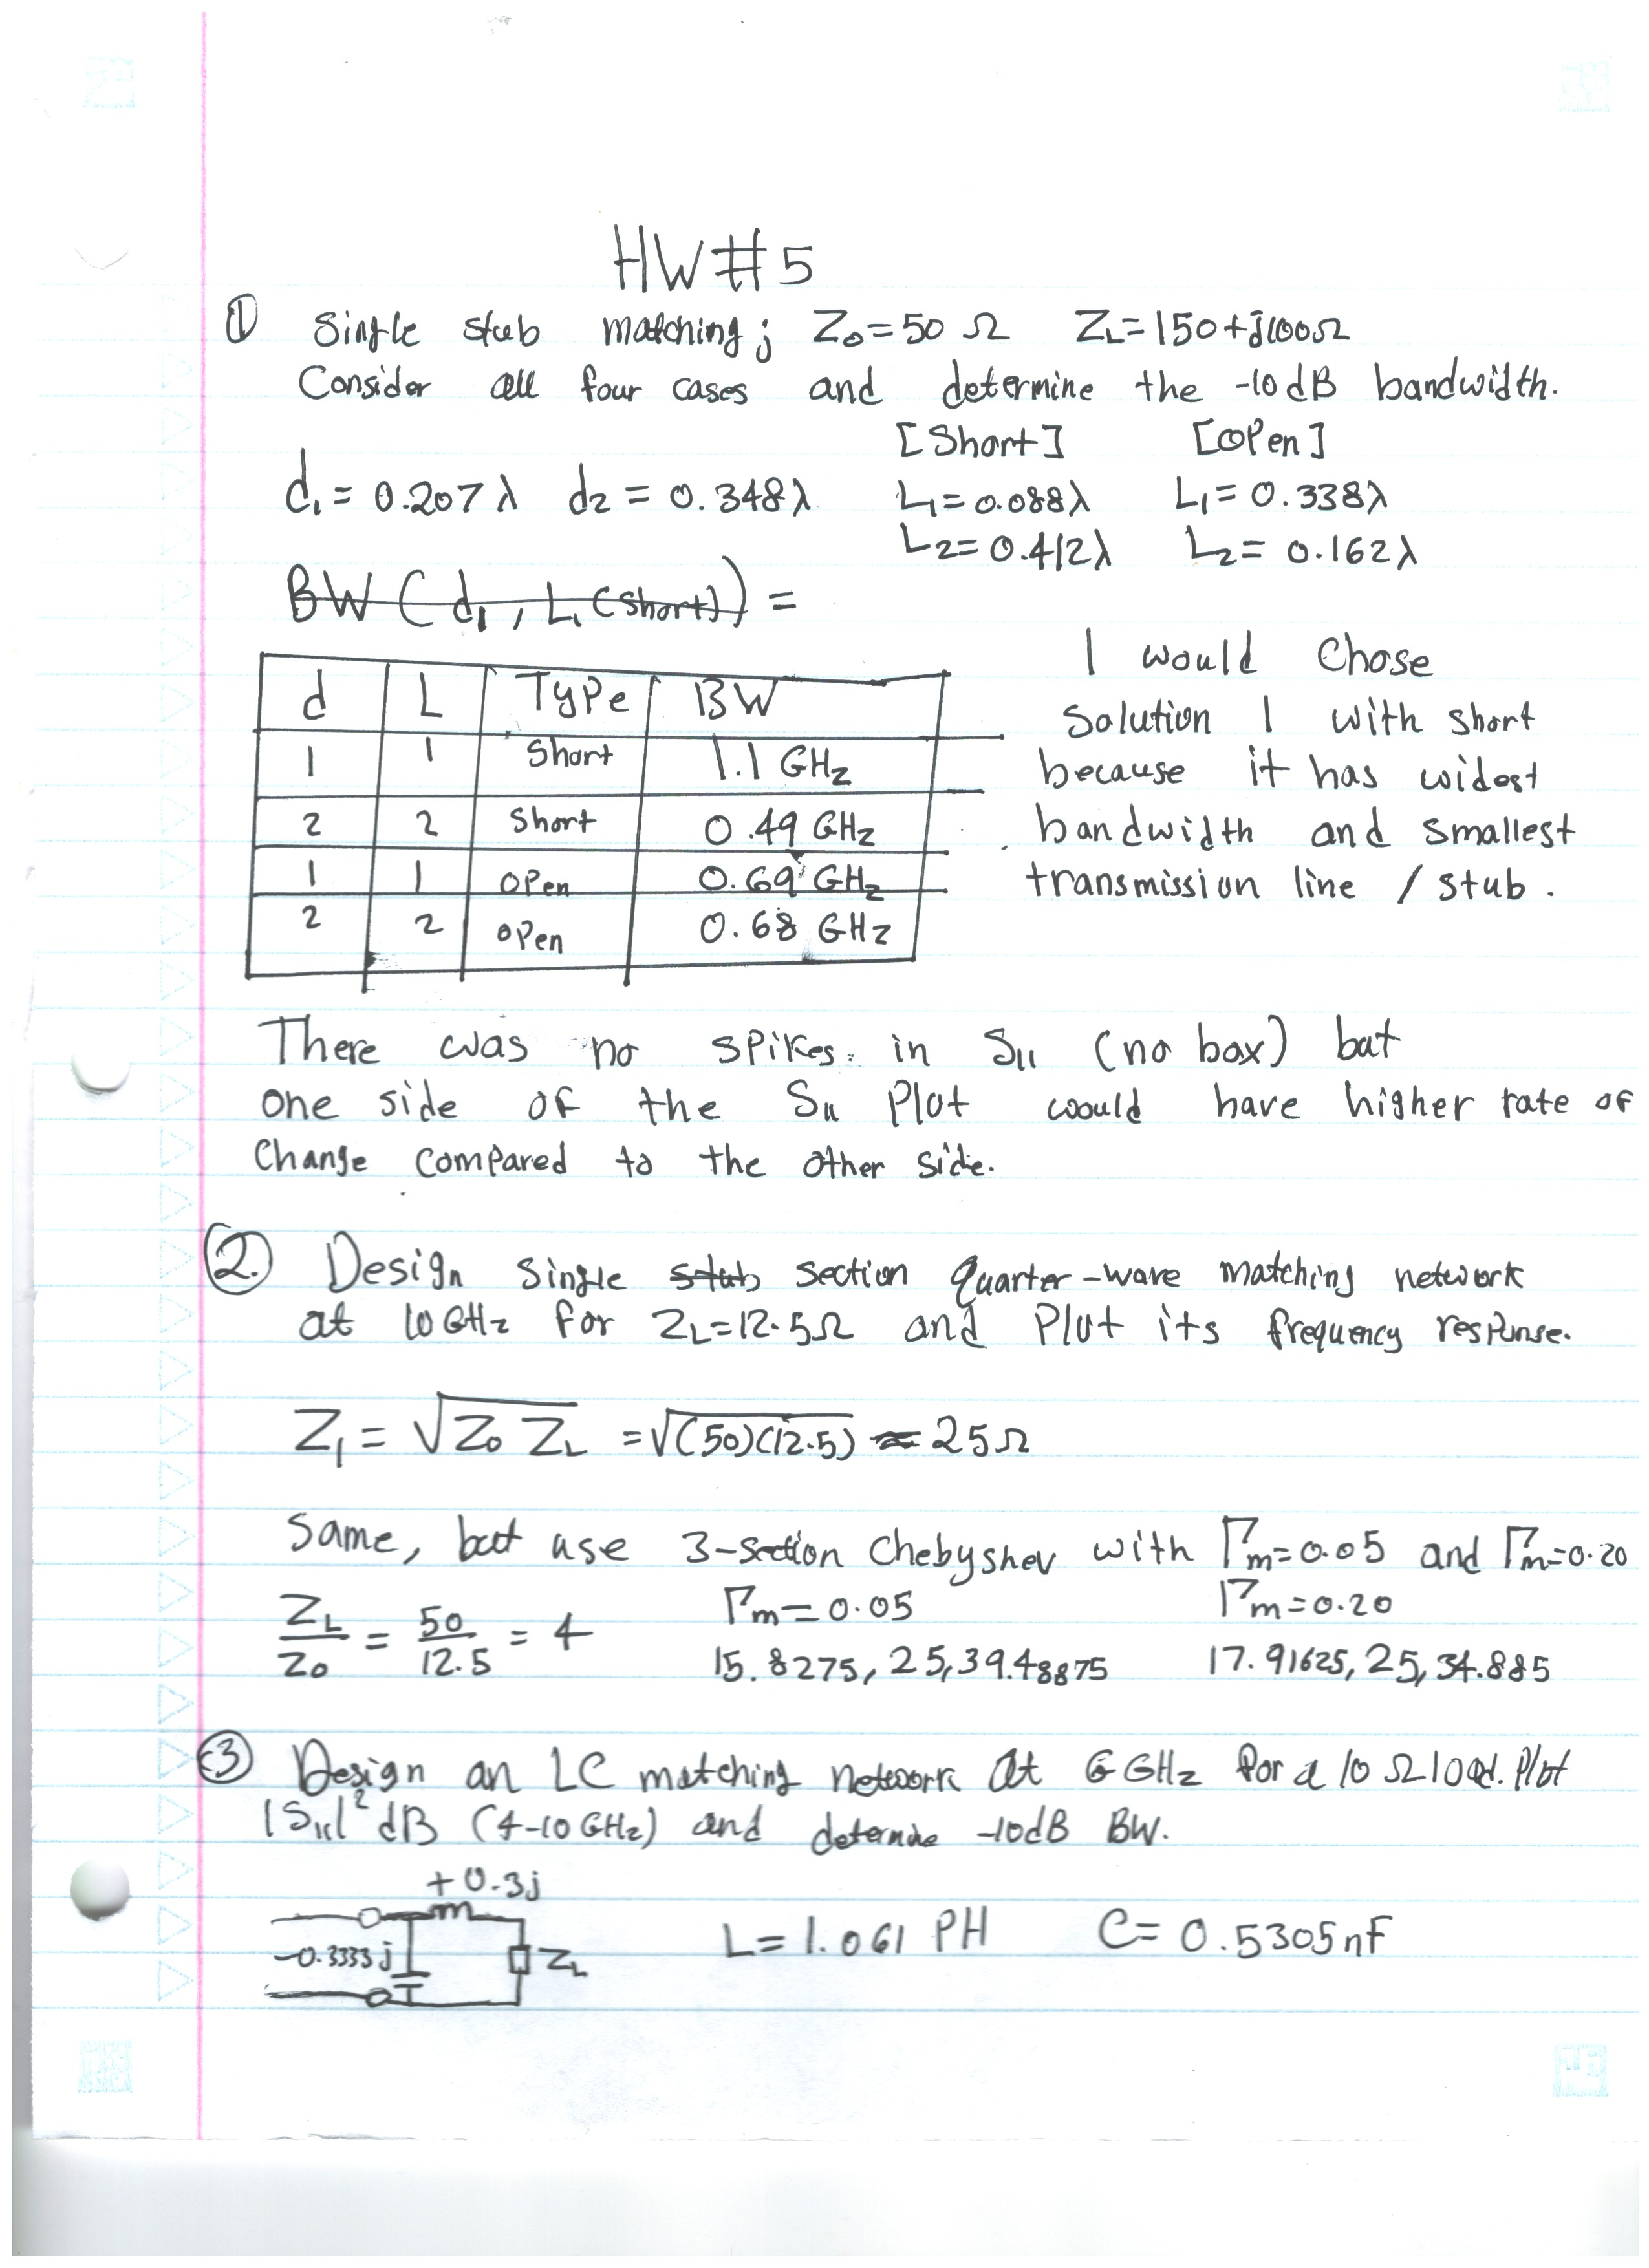 HW#5
① Single stub matching; Z₀=50 Ω Z_L=150+j100Ω
Consider all four cases and determine the -10dB bandwidth.
[Short] [OPen]
d₁ = 0.207λ d₂ = 0.348λ L₁=0.088λ L₁=0.338λ
L₂=0.412λ L₂= 0.162λ
BW (d₁, L₁(short)) =
d L TyPe BW
1 1 Short 1.1 GHz
2 2 Short 0.49 GHz
1 1 OPen 0.69 GHz
2 2 OPen 0.68 GHz
I would Chose
Solution 1 with short
because it has widest
bandwidth and smallest
transmission line / stub.
There was no sPikes in S₁₁ (no box) but
one side of the S₁₁ Plot would have higher rate of
Change comPared to the other side.
②. Design single stub section quarter-wave matching network
at 10GHz for Z_L=12.5Ω and Plot its frequency response.
Z₁ = √Z₀ Z_L = √(50)(12.5) = 25Ω
Same, but use 3-section Chebyshev with Γm=0.05 and Γm=0.20
Z_L/Z₀ = 50/12.5 = 4 Γm=0.05 Γm=0.20
15.8275, 25, 39.48875 17.91625, 25, 34.885
③ Design an LC matching network at 6 GHz for a 10 Ω load. Plot
|S₁₁|² dB (4-10 GHz) and determine -10dB BW.
+0.3j
-0.3333j Z_L L= 1.061 PH C= 0.5305nF